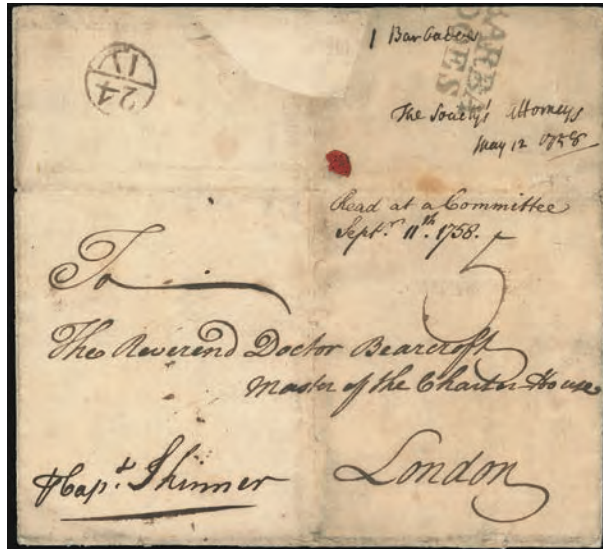 1 Barbadoes
BARBA
DOES
The Society's Attorneys
May 12 1758
24
Read at a Committee
Septr. 11th. 1758.
5
To
The Reverend Doctor Bearcroft
Master of the Charter House
London
Capt. Skinner